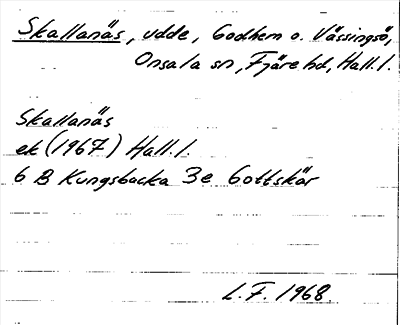 Skallanäs, udde, Godhem o. Vässingsö,
Onsala sn, Fjäre hd, Hall. l.
Skallanäs
ek (1967) Hall. l.
6 B Kungsbacka 3e Gottskär
L. F. 1968.